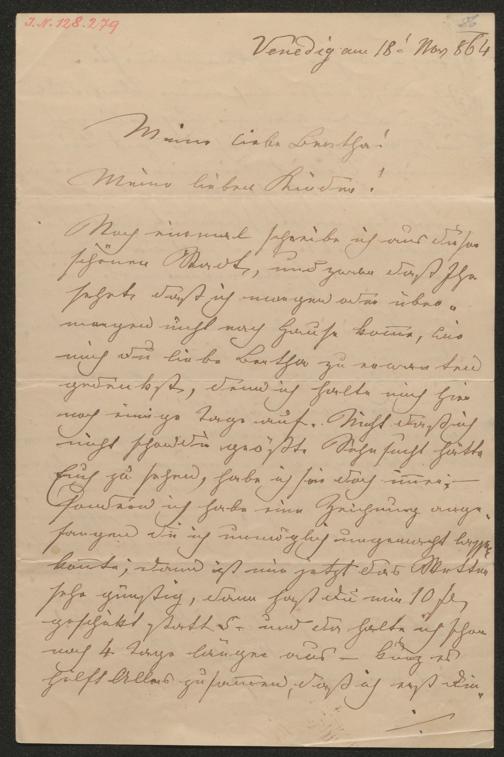 I.N. 128.279
86
Venedig am 18t Nov 864
Meine liebe Bertha!
Meine lieben Kinder!
Noch einmal schreibe ich aus dieser
schönen Stadt, und zwar daß Ihr
sehet daß ich morgen oder über„
morgen nicht nach Hause komme, wie
mich die liebe Bertha zu erwarten
gedenkst, denn ich halte mich hier
noch einige Tage auf. Nicht daß ich
nicht schon die größte Sehnsucht hätte
Euch zu sehen, habe ich sie doch immer;—
sondern ich habe eine Zeichnung ange„
fangen die ich unmöglich ungemacht lassen
konnte; dann ist mir jetzt das Wetter
sehr günstig, dann hast du mir 10 fl
geschikt statt 5. und da halte ich schon
noch 4 Tage länger aus — kurz es
hilft Alles zusammen, daß ich erst